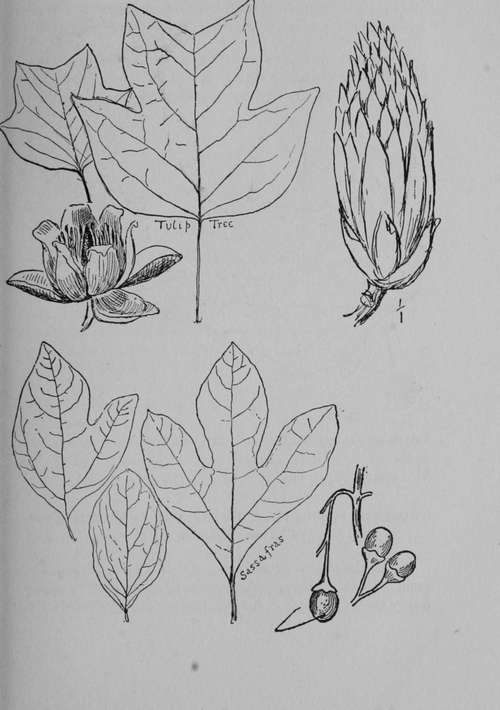 Tulip Tree
1/1
Sassafras